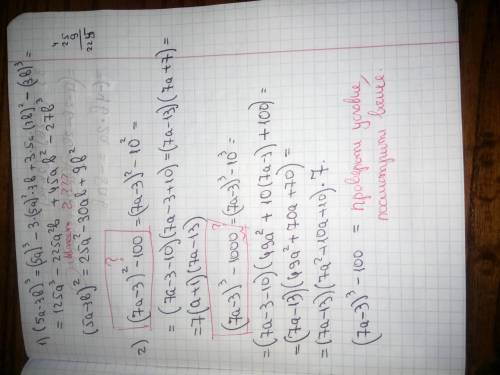 1) (5a-3b)³ = (5a)³ - 3·(5a)²·3b + 3·5a·(3b)² - (3b)³ =
= 125a³ - 225a²b + 45ab² - 27b³
(5a-3b)² = 25a² - 30ab + 9b²
?
2) (7a-3)² - 100 = (7a-3)² - 10² =
= (7a-3-10)(7a-3+10) = (7a-13)(7a+7) =
= 7(a+1)(7a-13)
?
(7a-3)³ - 1000 = (7a-3)³ - 10³ =
= (7a-3-10)(49a² + 10(7a-3) + 100) =
= (7a-13)(49a² + 70a + 70) =
= (7a-13)(7a² - 10a + 10)·7.
(7a-3)³ - 100 = проверьте условие,
посмотрите выше.
4
25
9
225